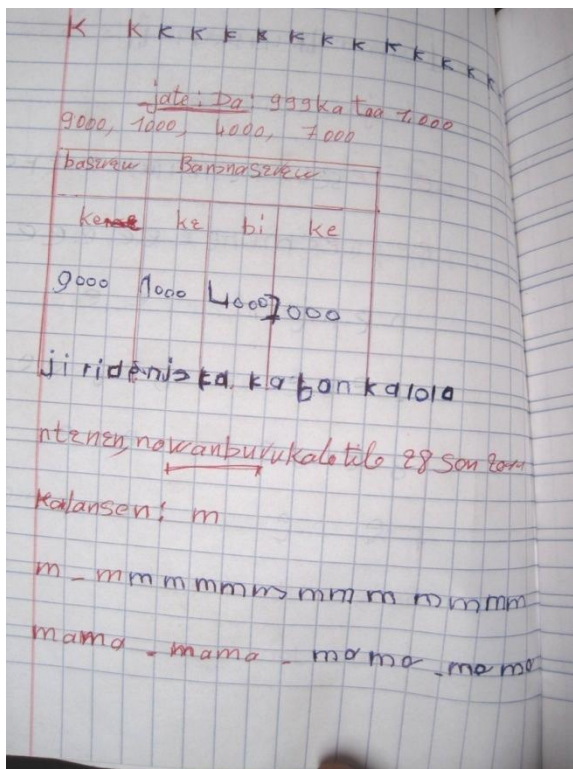 K K K K K K K K K K K K K K
jate: Da: 999 ka taa 1.000
9000, 1000, 4000, 7000
Kɛ bi ke
9000 1000 4000 7000
jiridenjɔ ka ka bon kalolo
ntɛnɛn, nowanburukalo tile 28 san
Kalansen: m
m - m m m m m m m m m m m m m
mama - mama - mama - mama